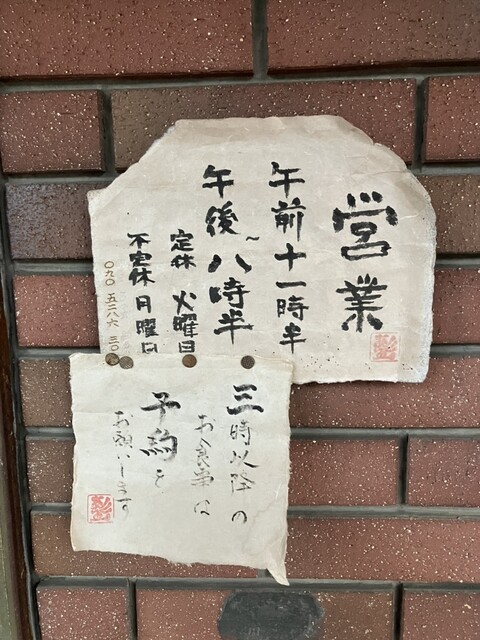 営業
午前十一時半
~
午後八時半
定休 火曜日
不定休 月曜日
〇九〇 五二八六 三〇
三時以降の
お食事は
予約を
お願いします